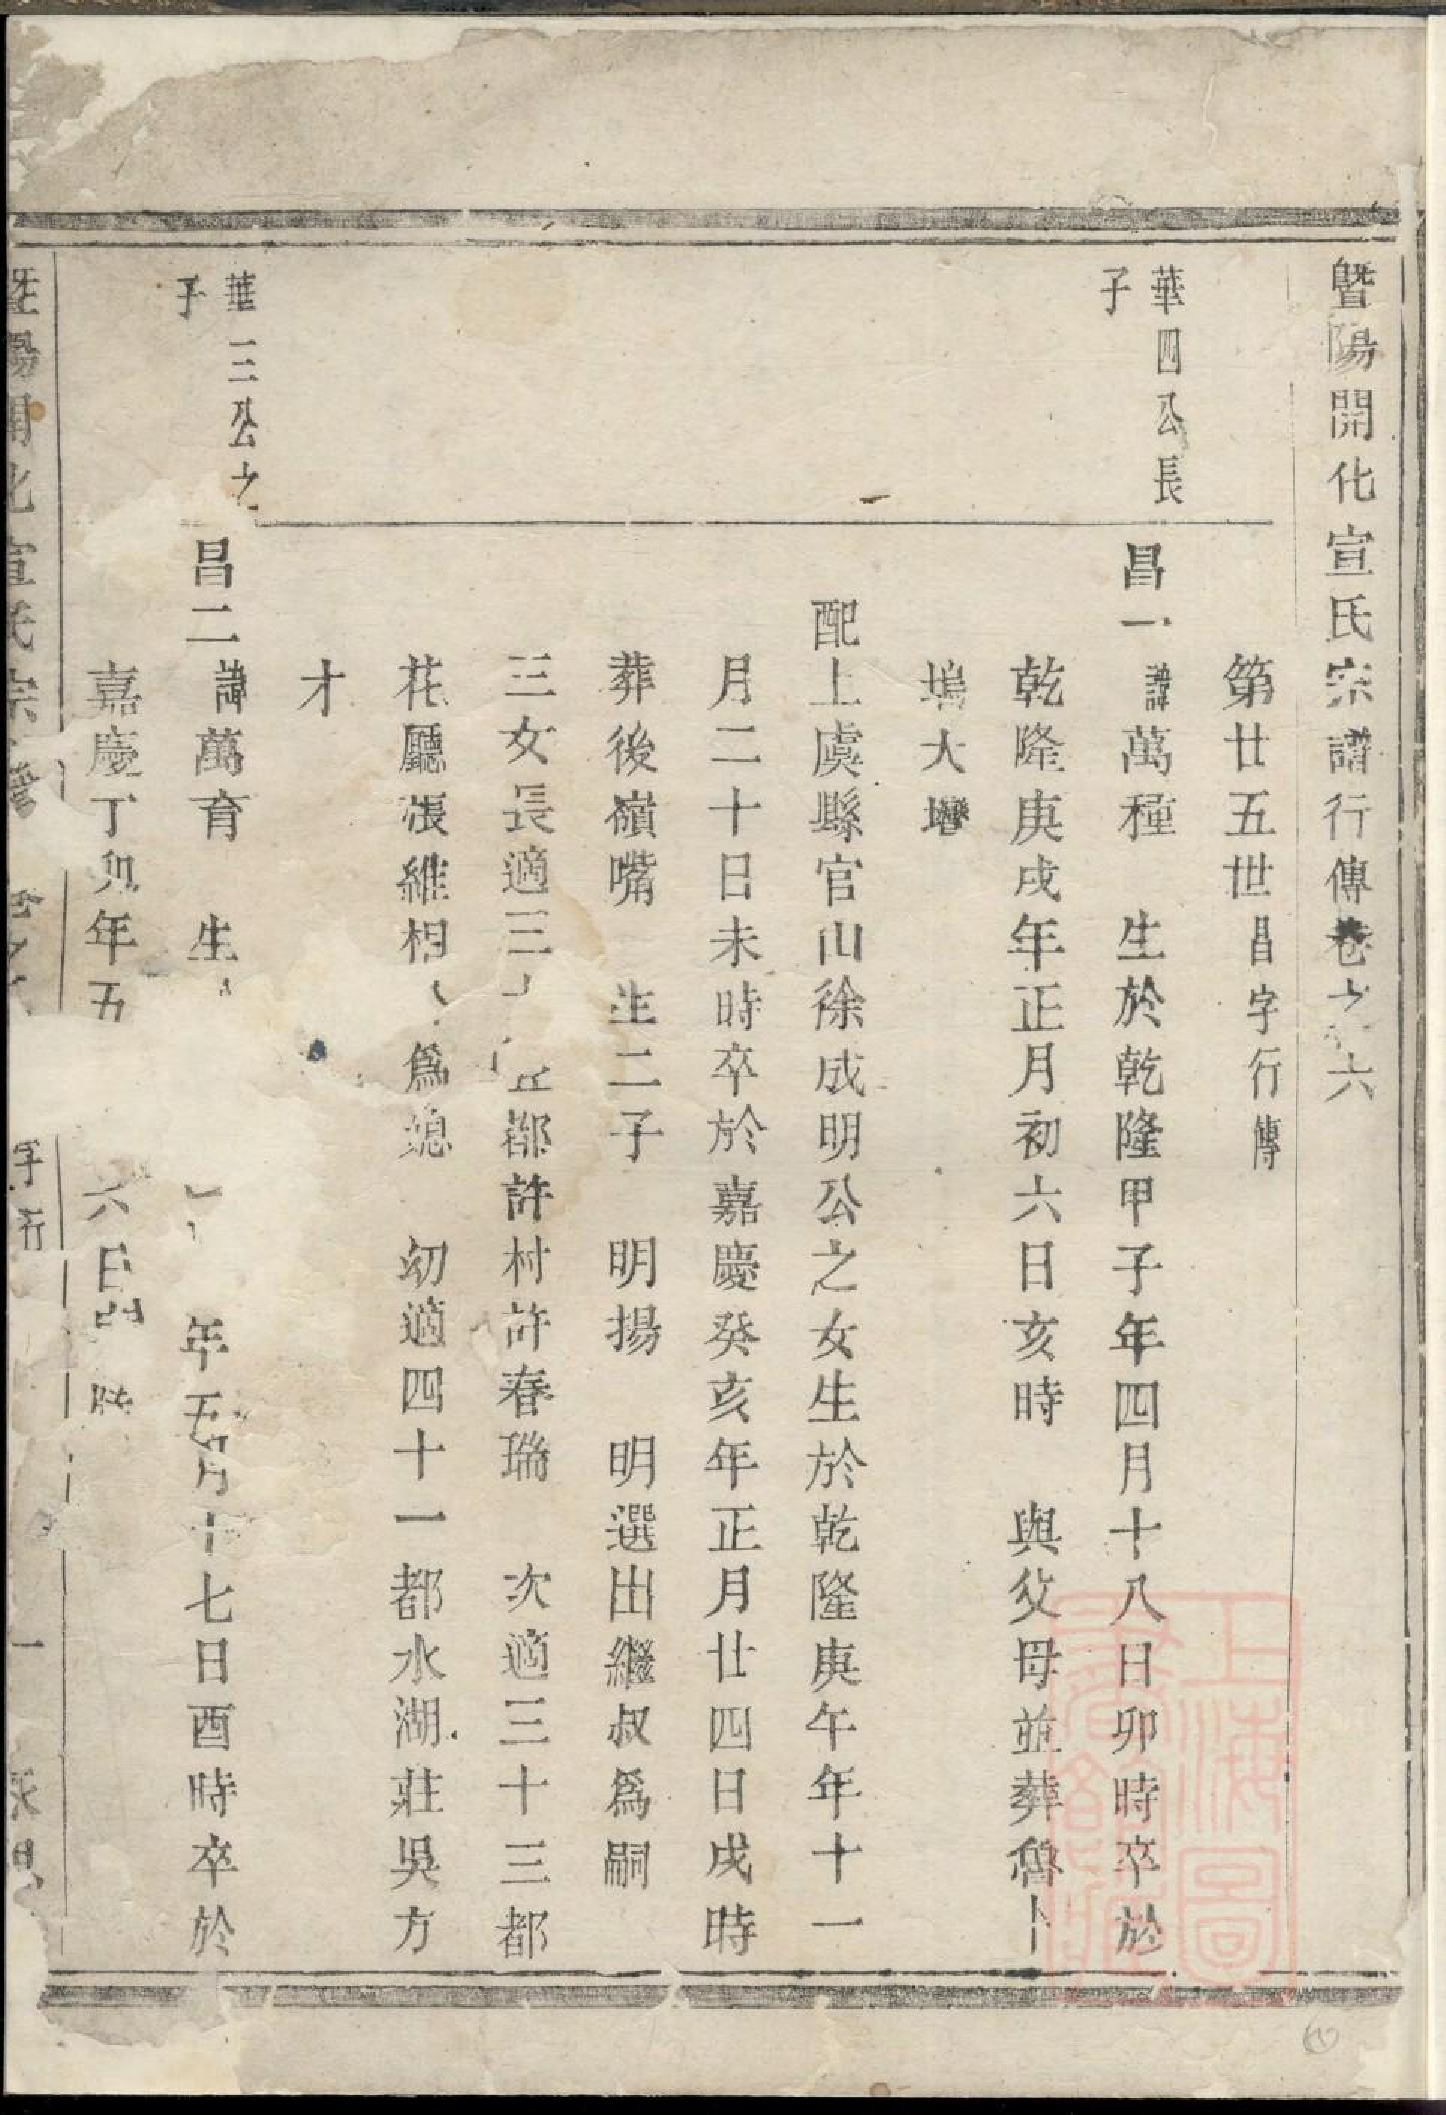 暨陽開化宣氏宗譜行傳卷之六
第廿五世昌字行傳
華四公長
子
昌一諱萬種 生於乾隆甲子年四月十八日卯時卒於
乾隆庚戌年正月初六日亥時 與父母並葬魯卜
塢大塆
配上虞縣官山徐成明公之女生於乾隆庚午年十一
月二十日未時卒於嘉慶癸亥年正月廿四日戌時
葬後嶺嘴 生二子 明揚 明選出繼叔爲嗣
三女長適三 都許村許春瑞 次適三十三都
花廳張維相 爲媳 幼適四十一都水湖莊吳方
才
華三公之
子
昌二諱萬育 生 年五月十七日酉時卒於
嘉慶丁卯年五 六日 時
暨陽開化宣氏宗譜 字行 一
上海圖
書館藏